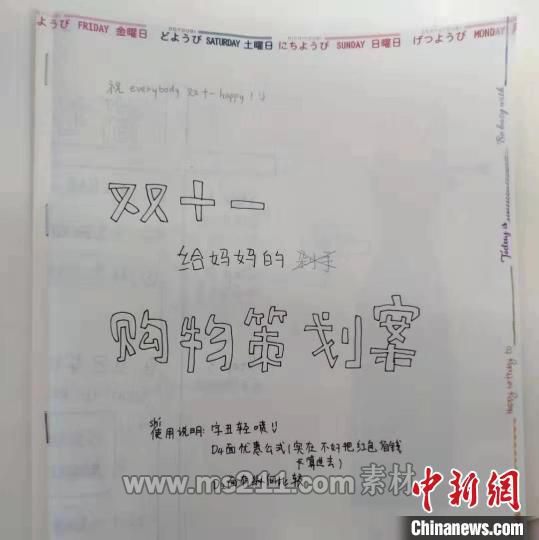 ようび FRIDAY 金曜日 どようび SATURDAY 土曜日 にちようび SUNDAY 日曜日 げつようび MONDAY
祝 everybody 双十一 happy!
双十一
给妈妈的 剁手
购物策划案
shi
使用说明: 字丑轻喷
D4面优惠公式(实在不好把红包省钱
卡算进去)
Today is
www.ms211.com 素材
中新网
Chinanews.com